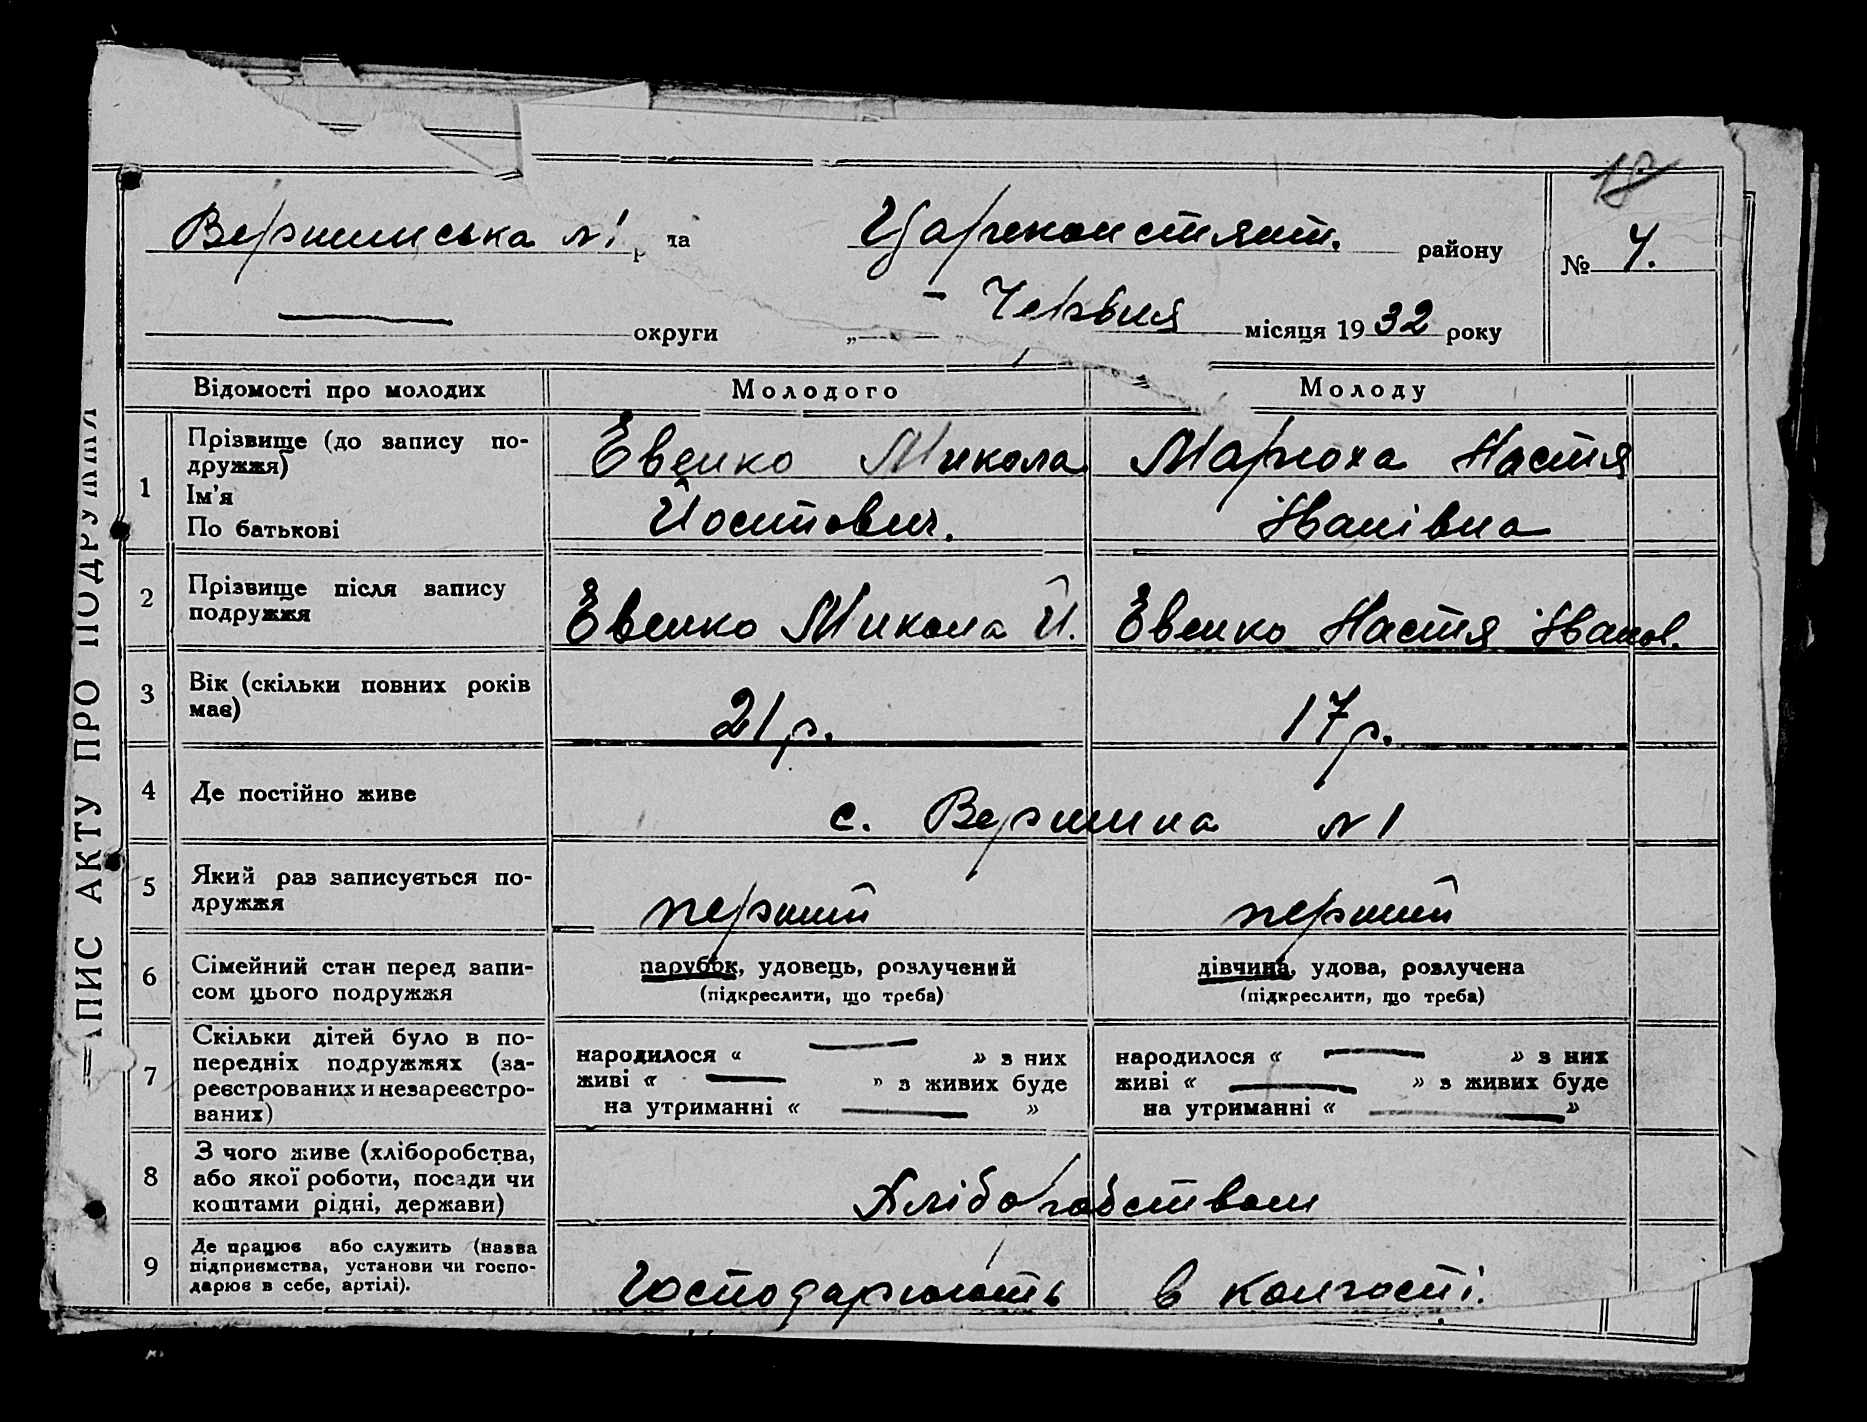 18
Вершинська №1 р да Цареконстянт. району № 4.
округи „ – Червня місяця 1932 року
ПИС АКТУ ПРО ПОДРУЖЖЯ
Відомості про молодих Молодого Молоду
1 Прізвище (до запису по-
дружжя)
Ім’я
По батькові
Евенко Микола
Йостович.
Марюха Настя
Іванівна
2 Прізвище після запису
подружжя
Евенко Микола Й. Евенко Настя Іванов.
3 Вік (скільки повних років
має)
21 р. 17 р.
4 Де постійно живе с. Вершина №1
5 Який раз записується по-
дружжя
перший перший
6 Сімейний стан перед запи-
сом цього подружжя
парубок, удовець, розлучений
(підкреслити, що треба)
дівчина, удова, розлучена
(підкреслити, що треба)
7 Скільки дітей було в по-
передніх подружжях (за-
реєстрованих и незареєстро-
ваних)
народилося « — » з них
живі « — » з живих буде
на утриманні « — »
народилося « — » з них
живі « — » з живих буде
на утриманні « — »
8 З чого живе (хліборобства,
або якої роботи, посади чи
коштами рідні, держави)
Хліборобством
9 Де працює або служить (назва
підприємства, установи чи госпо-
дарює в себе, артілі).
Господарюють в колгоспі.